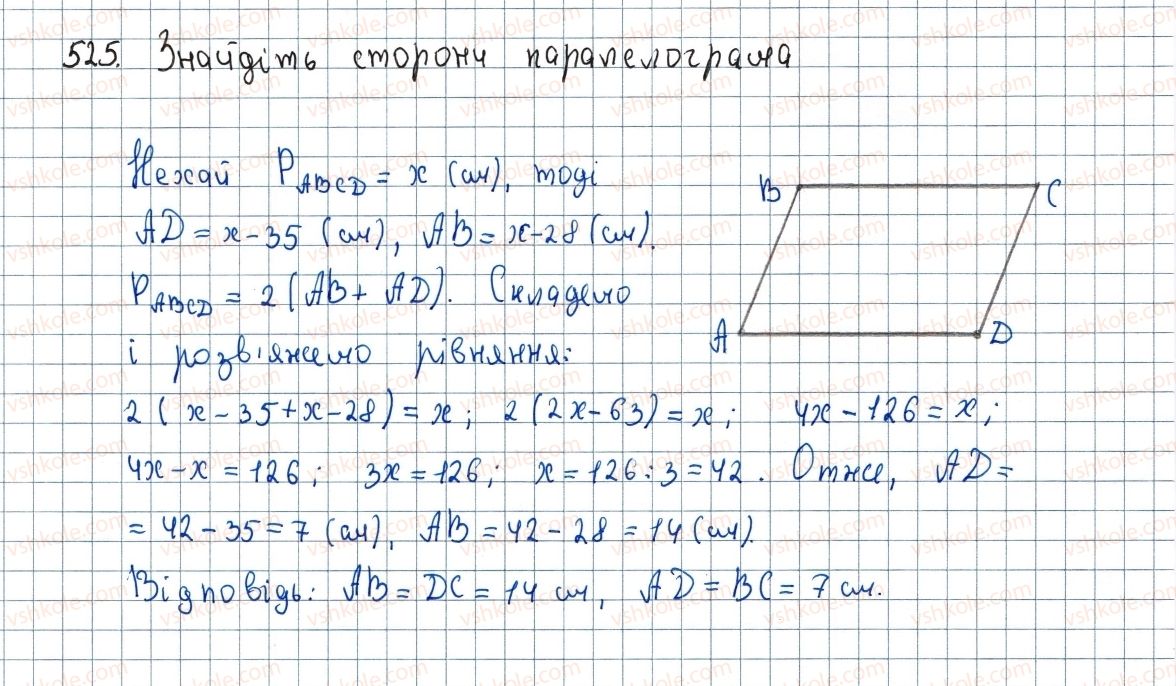 525. Знайдіть сторони паралелограма
Нехай P_ABCD = x (см), тоді
AD = x - 35 (см), AB = x - 28 (см).
P_ABCD = 2 (AB + AD). Складемо
і розв'яжемо рівняння:
2 ( x - 35 + x - 28) = x; 2 (2x - 63) = x; 4x - 126 = x;
4x - x = 126; 3x = 126; x = 126 : 3 = 42. Отже, AD =
= 42 - 35 = 7 (см), AB = 42 - 28 = 14 (см).
Відповідь: AB = DC = 14 см, AD = BC = 7 см.
B
C
A
D
vshkole.com